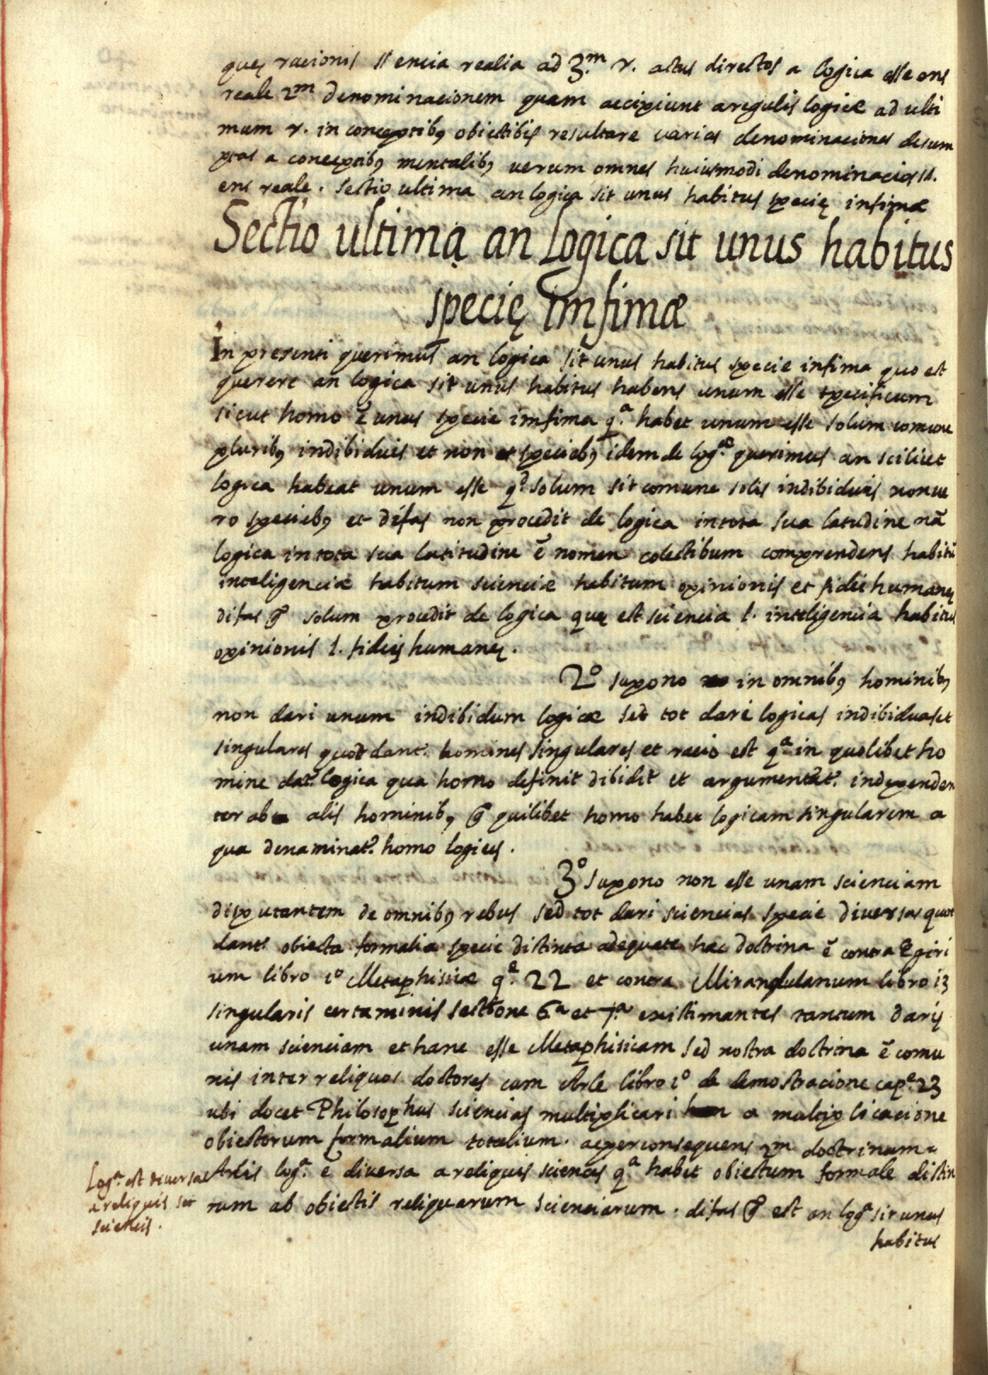 queȩ racionis ꝉꝉ encia realia ad 3.m r. actus directos a logica esse ens
reale 2m denominacionem quam accipiunt a regulis logicæ ad ulti
mum r. in conceptibꝰ obiectibis resultare varias denominaciones desum
ptas a conceptibꝰ mentalibꝰ verum omnes huiusmodi denominacio
ens reale. Sectio ultima an logica sit unus habitus specię infimæ
Sectio ultima an Logica sit unus habitus
specię imfimæ
In presenti querimus an logica sit unus habitus specie infima quo est
querere an logica sit unus habitus habens unum esse specificum
sicut homo ẽ unus specie imfima q.ª habet unum esse solum comune
pluribꝰ indibiduis et non speciebꝰ idem de logca querimus an scilicet
logica habeat unum esse qd solum sit comune solis indibiduis non ve
ro speciebꝰ et difas non procedit de logica in tota sua latudine nã
logica in tota sua latitudine ẽ nomen colectibum comprendens habitũ
inteligenciæ habitum scienciæ habitum opinionis et fidei humanę
difas g̃ solum procedit de logica quę est sciencia l. inteligencia habitus
opinionis l. fidei humanę.
2º supono in omnibꝰ hominibꝰ
non dari unum indibidum logicæ sed tot dari logicas indibiduas et
singulares quot dant.r homines singulares et racio est q.ª in quolibet ho
mine dat.r logica qua homo definit dibidit et argumentat.r independen
ter ab alis hominibꝰ g̃ quilibet homo habet logicam singularem a
qua denominat.r homo logicus.
3º supono non esse unam scienciam
disputantem de omnibꝰ rebus sed tot dari sciencias specie diversas quot
dantr obiecta formalia specie distinta adequate hæc doctrina ẽ contra Egiri
um libro 1º Metaphisicæ q.ª 22 et contra Mirandulanum libro 13
singularis certaminis sectione 6ª et 7ª existimantes tantum dari
unam scienciam et hanc esse Metaphisicam sed nostra doctrina ẽ comu
nis inter reliquos doctores cum Arle libro 1º de demostracione cap.e 23
ubi docet Philosophus sciencias multiplicari a multiplicacione
obiectorum formalium totalium. ac per consequens 2m doctrinam
Arlis log.ª ẽ diversa a reliquis sciencis q.ª habet obiectum formale distin
tum ab obiectis reliquarum scienciarum. difas g̃ est an logª sit unus
habitus
Log.ª est diversa
a reliquis
sciencis.